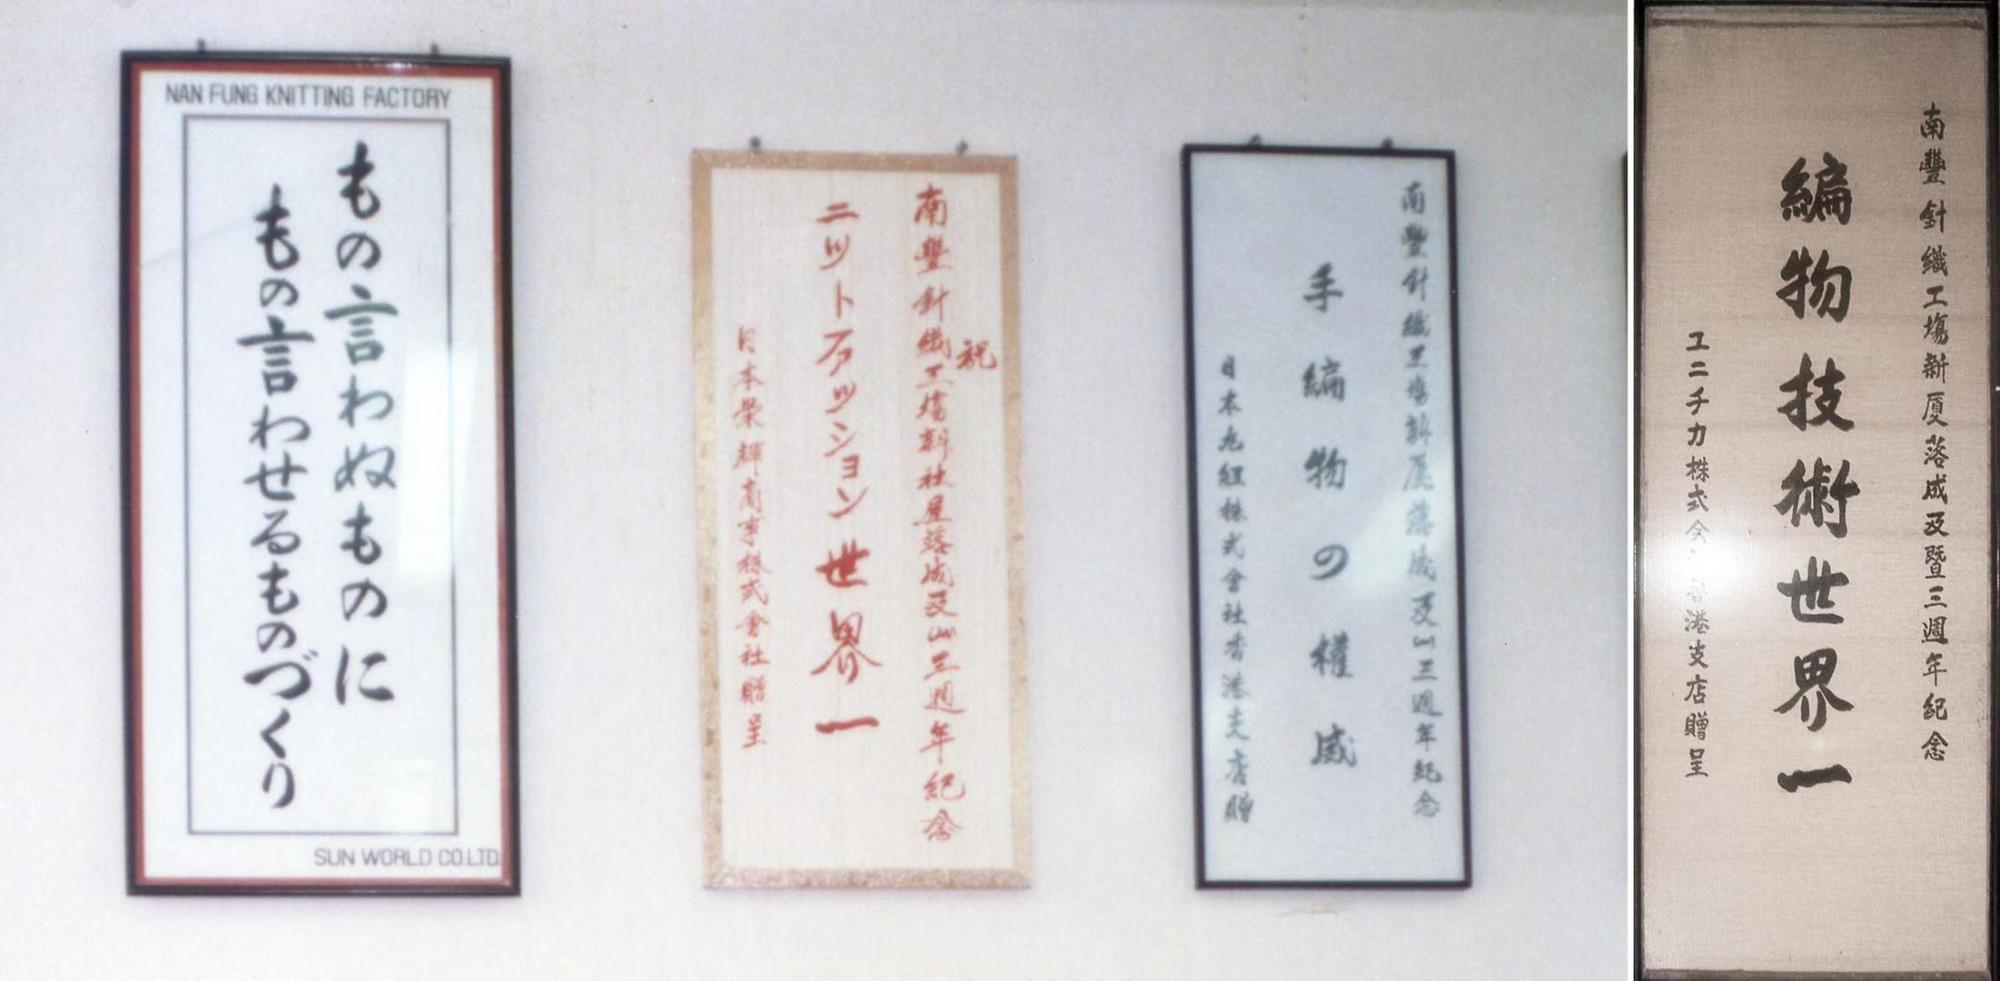 NAN FUNG KNITTING FACTORY
もの言わぬものに
もの言わせるものづくり
SUN WORLD CO.LTD
祝
南豐針織工塲新社屋落成及山三週年紀念
ニットファッション世界一
日本榮輝商事株式會社贈呈
南豐針織工塲新厦落成及山三週年紀念
手編物の權威
日本丸紅株式會社香港支店贈
南豐針織工塲新厦落成及暨三週年紀念
編物技術世界一
ユニチカ株式会 香港支店贈呈